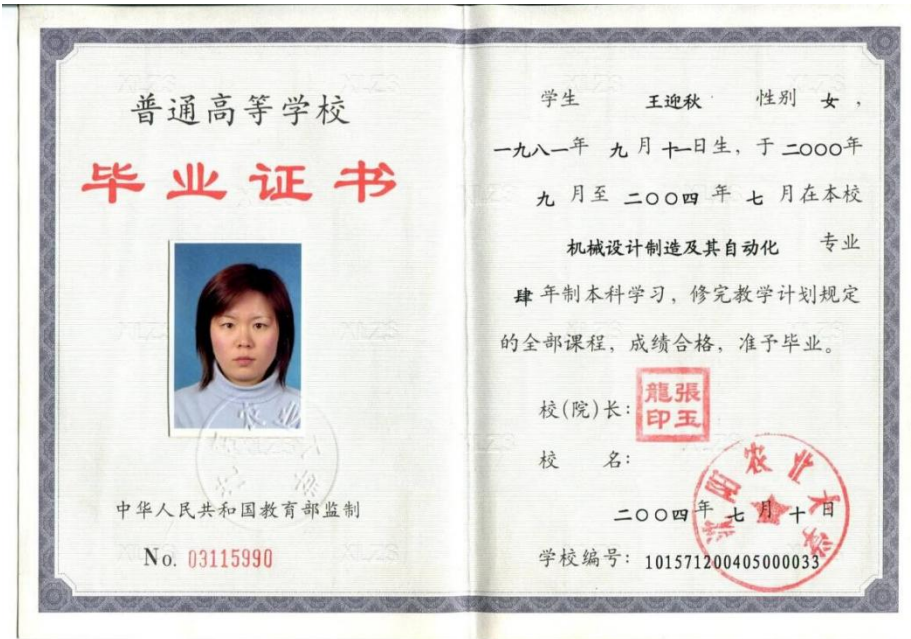 普通高等学校
毕业证书
中华人民共和国教育部监制
No. 03115990
学生 王迎秋 性别 女，
一九八一年 九月十一日生，于二〇〇〇年
九 月至 二〇〇四 年 七 月在本校
机械设计制造及其自动化 专业
肆 年制本科学习，修完教学计划规定
的全部课程，成绩合格，准予毕业。
校(院)长：
張玉龍印
校 名：
沈阳农业大学
二〇〇四年 七 月 十 日
学校编号：101571200405000033